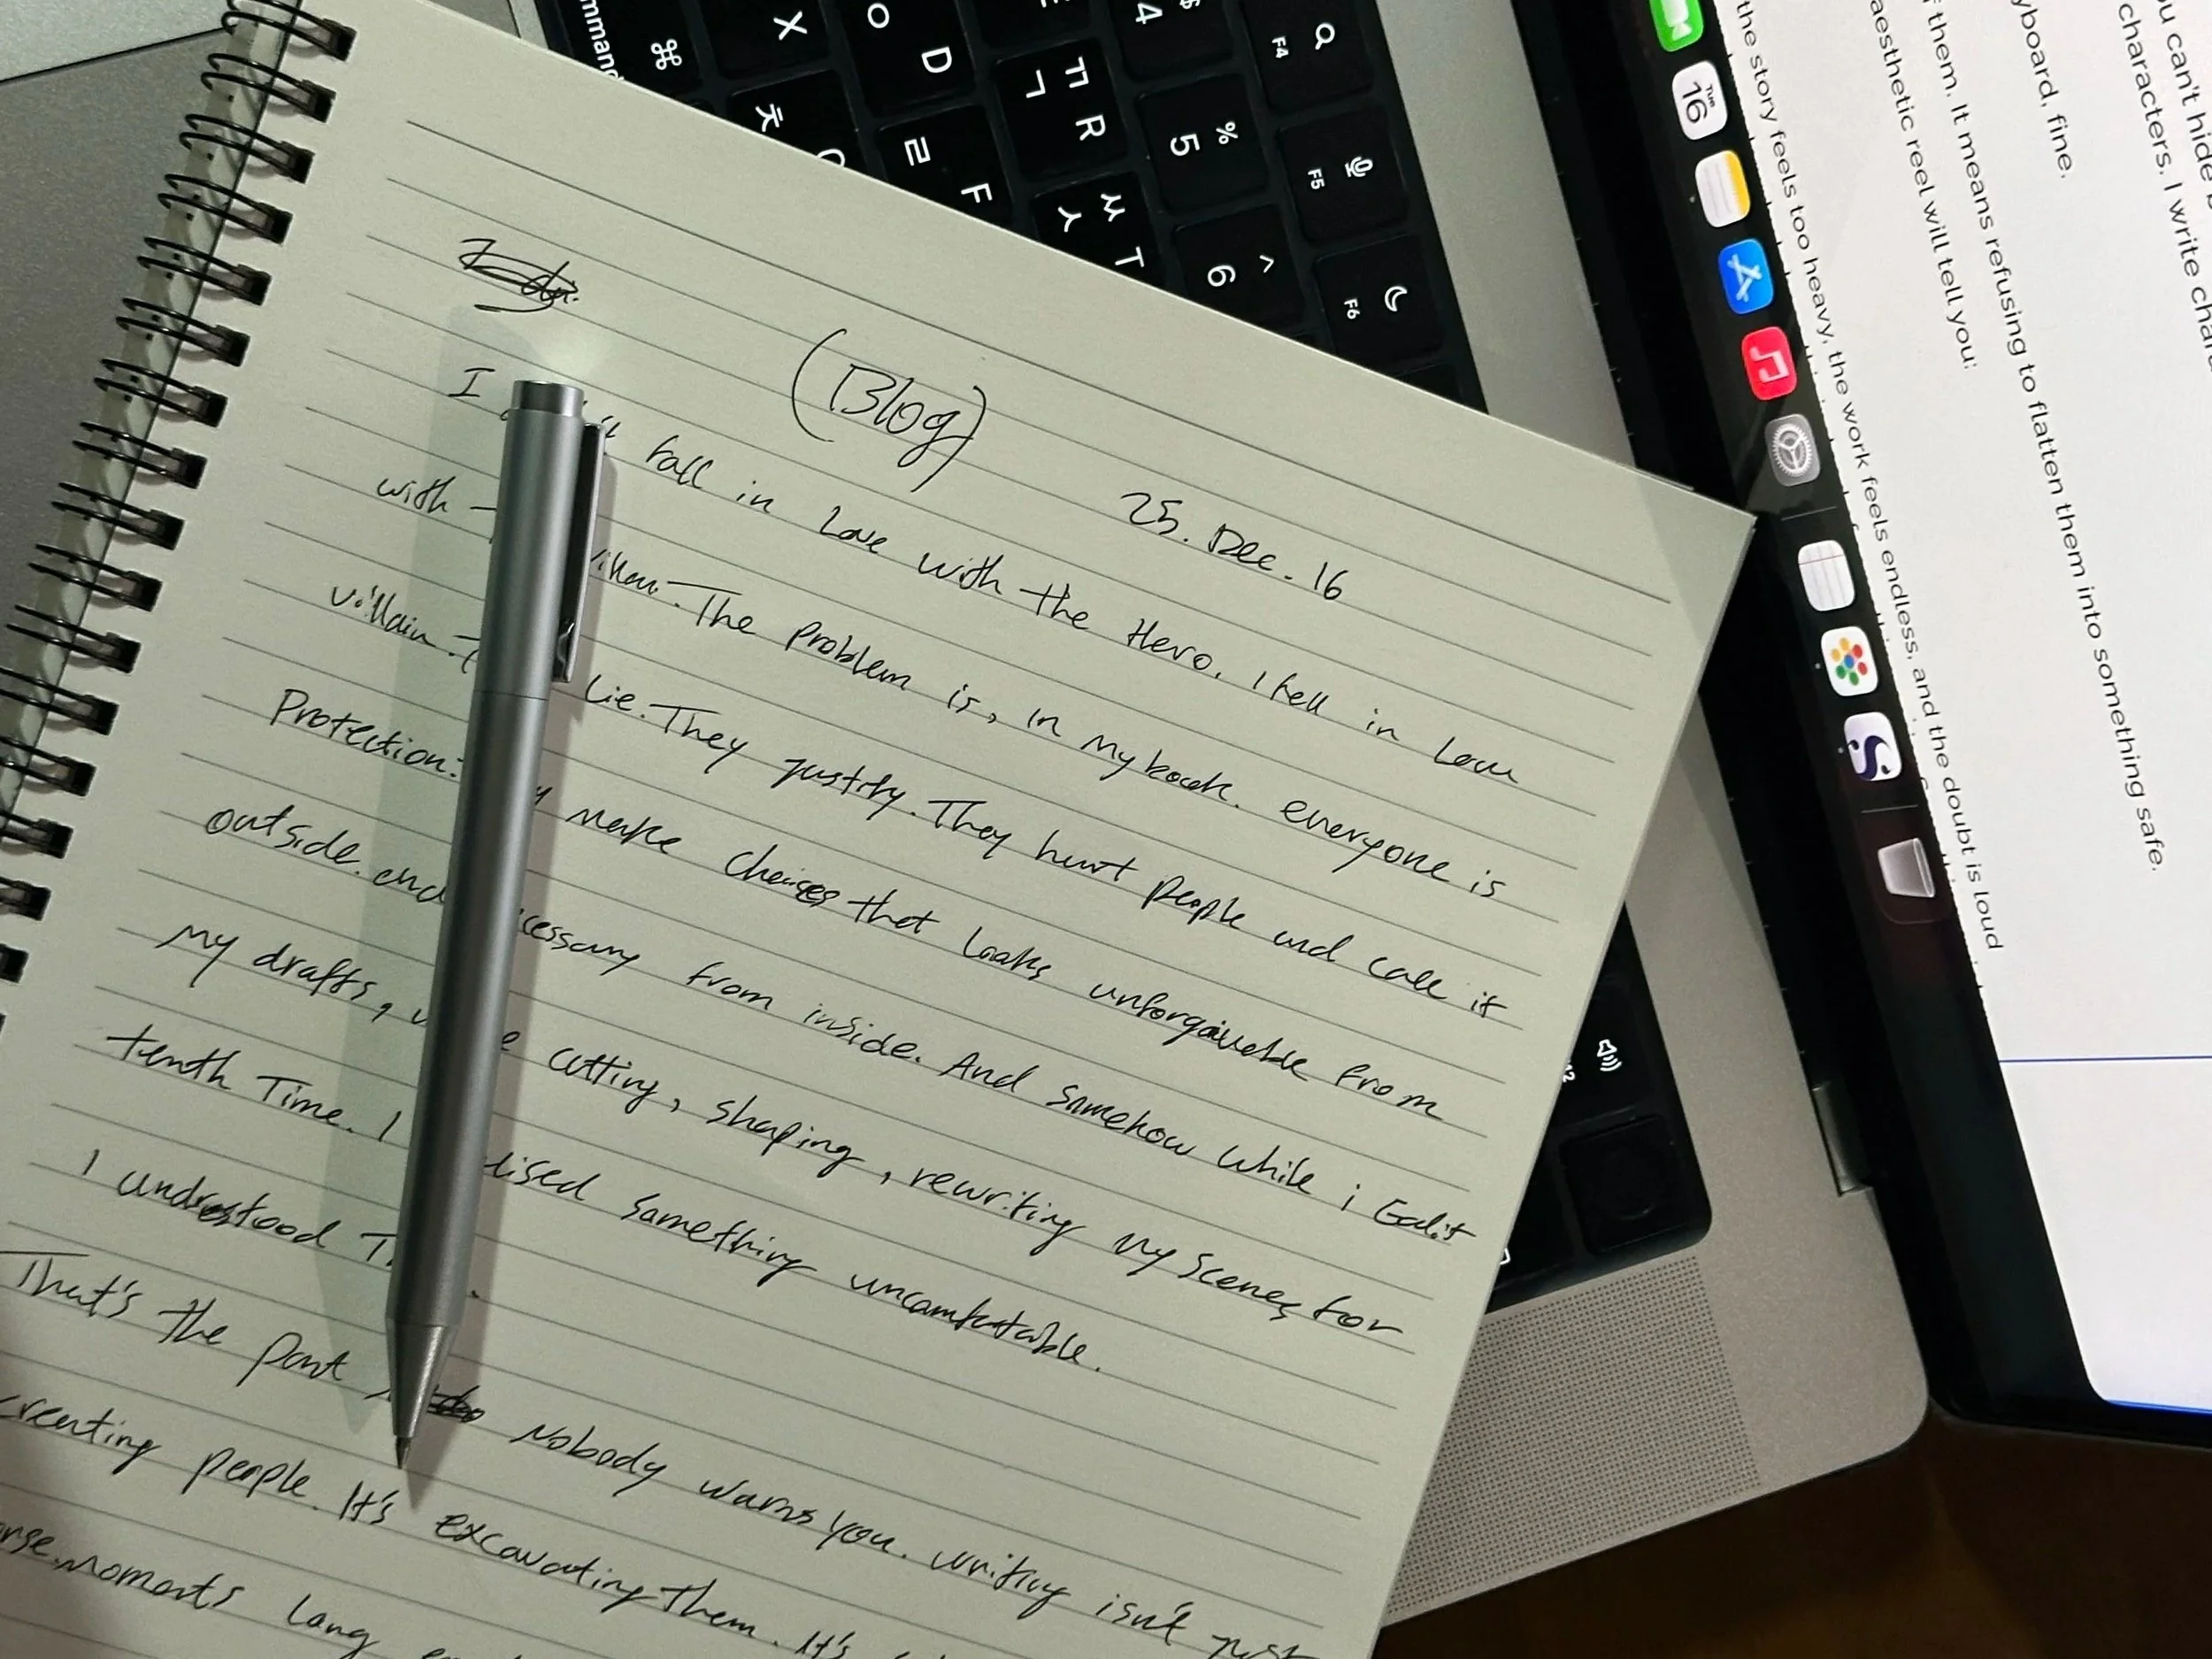 (Blog)
25. Dec. 16
I fall in Love with the Hero. I fell in Love
with The problem is, in my book. everyone is
villain. Lie. They justify. They hurt people and call it
Protection. make choices that looks unforgivable from
outside. and from inside. And somehow while i Edit
My drafts, cutting, shaping, rewriting my scenes for
tenth Time. I something uncomfortable.
I understood
That's the part Nobody warns you. writing isn't just
creating people. It's excavating them. It's
Moments long
command
⌘
X
ㅊ
D
F
ㄹ
ㄲ
ㄱ
R
ㅆ
ㅅ
T
$
4
%
5
^
6
F4
F5
F6
Tue
16
u can't hide
characters. I write
yboard, fine.
them. It means refusing to flatten them into something safe.
aesthetic reel will tell you:
the story feels too heavy, the work feels endless, and the doubt is loud